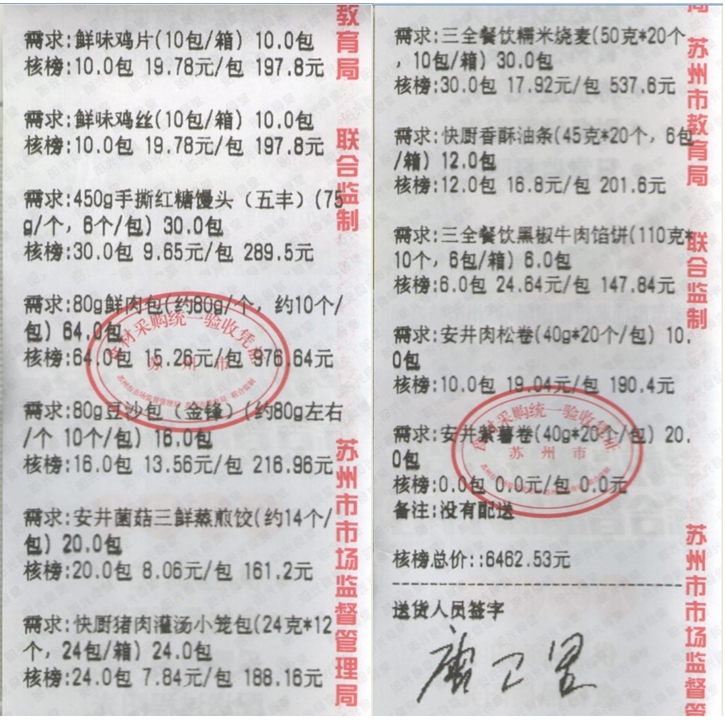 需求:鲜味鸡片(10包/箱) 10.0包
核榜:10.0包 19.78元/包 197.8元
需求:鲜味鸡丝(10包/箱) 10.0包
核榜:10.0包 19.78元/包 197.8元
需求:450g手撕红糖馒头（五丰）(75
g/个，6个/包) 30.0包
核榜:30.0包 9.65元/包 289.5元
需求:80g鲜肉包(约80g/个，约10个/
包) 64.0包
核榜:64.0包 15.26元/包 976.64元
需求:80g豆沙包（金锋）(约80g左右
/个 10个/包) 16.0包
核榜:16.0包 13.56元/包 216.96元
需求:安井菌菇三鲜蒸煎饺(约14个/
包) 20.0包
核榜:20.0包 8.06元/包 161.2元
需求:快厨猪肉灌汤小笼包(24克*12
个，24包/箱) 24.0包
核榜:24.0包 7.84元/包 188.16元
教育局
联合监制
苏州市市场监督管理局
食材采购统一验收凭证
苏州市
需求:三全餐饮糯米烧麦(50克*20个
，10包/箱) 30.0包
核榜:30.0包 17.92元/包 537.6元
需求:快厨香酥油条(45克*20个，6包
/箱) 12.0包
核榜:12.0包 16.8元/包 201.6元
需求:三全餐饮黑椒牛肉馅饼(110克*
10个，6包/箱) 6.0包
核榜:6.0包 24.64元/包 147.84元
需求:安井肉松卷(40g*20个/包) 10.
0包
核榜:10.0包 19.04元/包 190.4元
需求:安井紫薯卷(40g*20个/包) 20.
0包
核榜:0.0包 0.0元/包 0.0元
备注:没有配送
核榜总价::6462.53元
送货人员签字
局
苏州市教育局
联合监制
苏州市市场监督管
食材采购统一验收凭证
苏州市